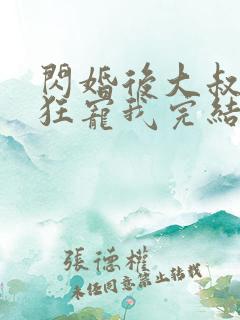 閃婚後大叔
狂寵我完結
張德權
未經同意禁止轉載